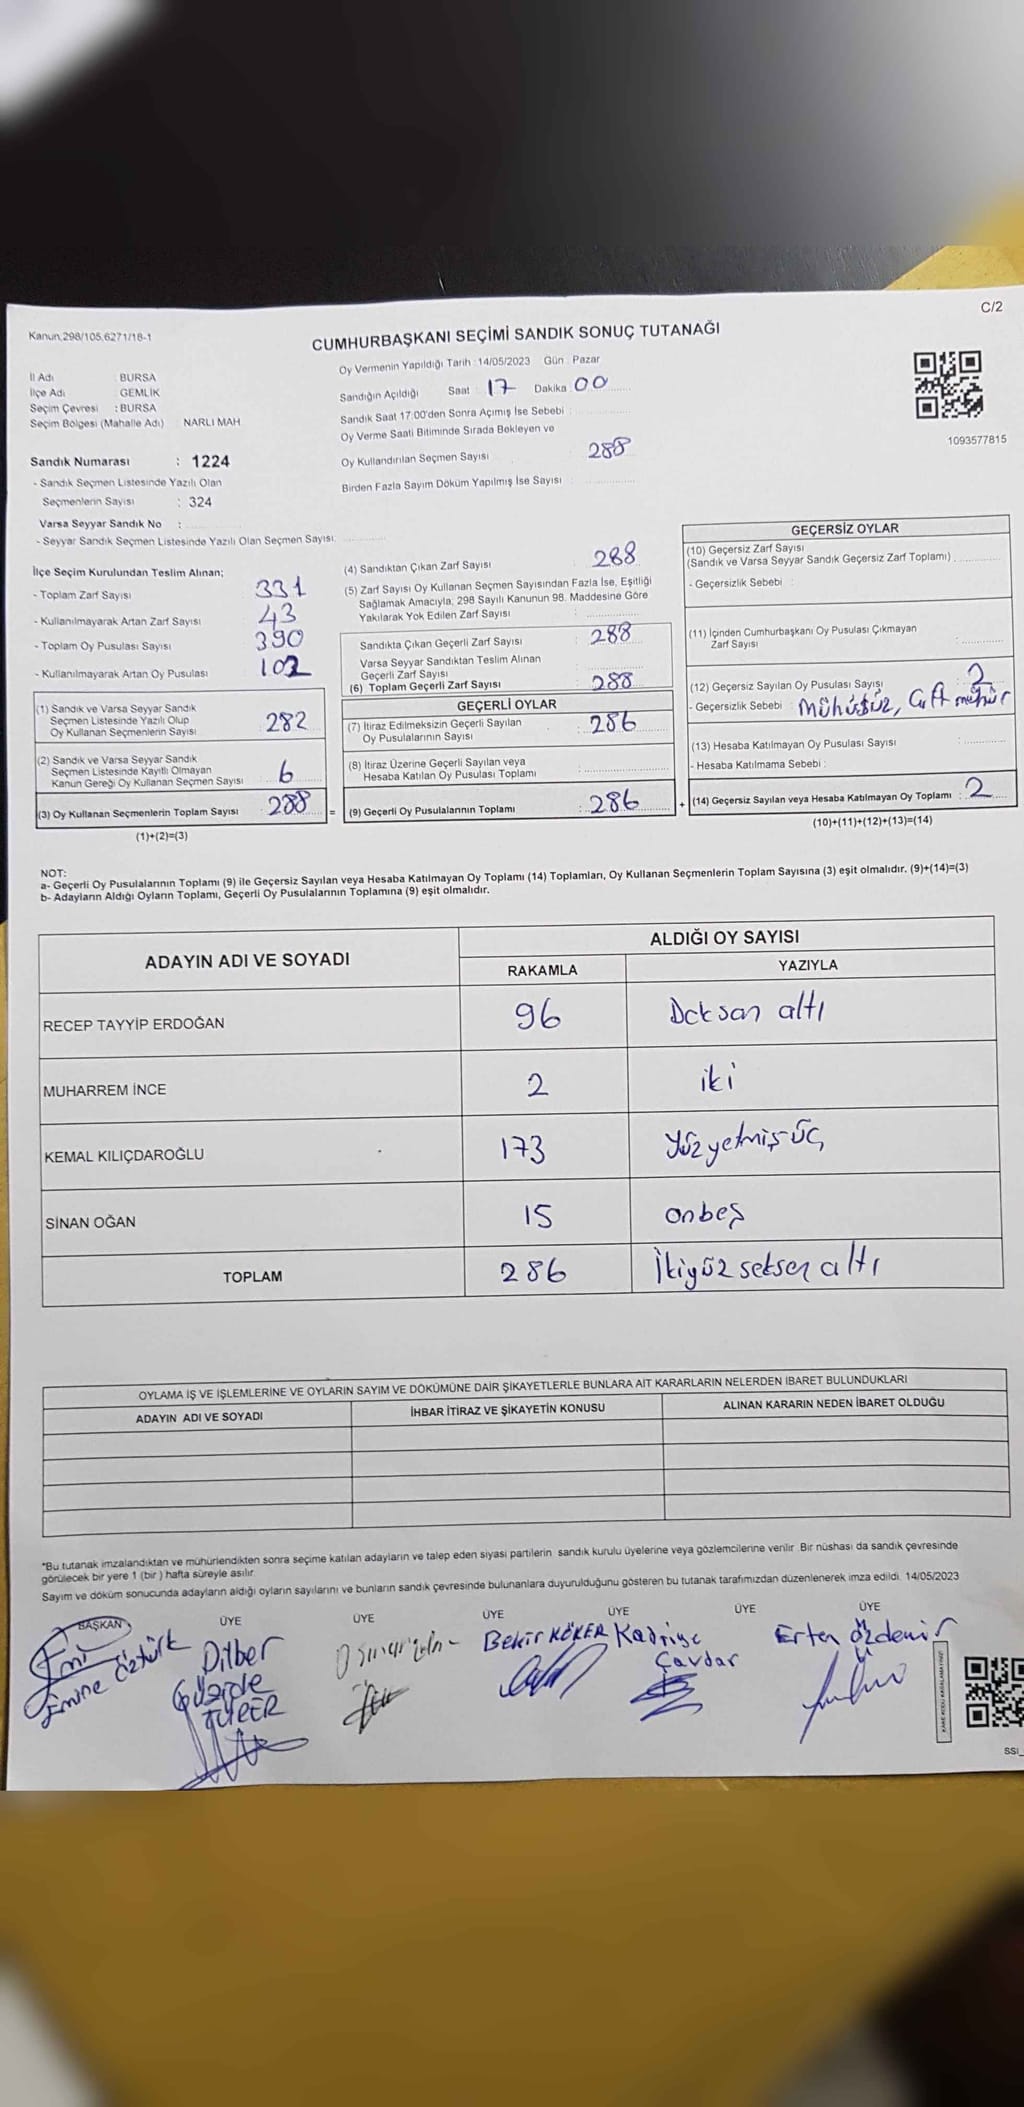 C/2
Kanun,298/105,6271/18-1
CUMHURBAŞKANI SEÇİMİ SANDIK SONUÇ TUTANAĞI
Oy Vermenin Yapıldığı Tarih :14/05/2023 Gün : Pazar
İl Adı : BURSA
İlçe Adı : GEMLİK
Seçim Çevresi : BURSA
Seçim Bölgesi (Mahalle Adı) : NARLI MAH
Sandık Numarası : 1224
- Sandık Seçmen Listesinde Yazılı Olan
Seçmenlerin Sayısı : 324
Varsa Seyyar Sandık No :
- Seyyar Sandık Seçmen Listesinde Yazılı Olan Seçmen Sayısı:
Sandığın Açıldığı Saat 17 Dakika 00
Sandık Saat 17:00'den Sonra Açımış İse Sebebi :
Oy Verme Saati Bitiminde Sırada Bekleyen ve
Oy Kullandırılan Seçmen Sayısı : 288
Birden Fazla Sayım Döküm Yapılmış İse Sayısı :
1093577815
İlçe Seçim Kurulundan Teslim Alınan;
- Toplam Zarf Sayısı 331
- Kullanılmayarak Artan Zarf Sayısı 43
- Toplam Oy Pusulası Sayısı 390
- Kullanılmayarak Artan Oy Pusulası 102
(1) Sandık ve Varsa Seyyar Sandık
Seçmen Listesinde Yazılı Olup
Oy Kullanan Seçmenlerin Sayısı 282
(2) Sandık ve Varsa Seyyar Sandık
Seçmen Listesinde Kayıtlı Olmayan
Kanun Gereği Oy Kullanan Seçmen Sayısı 6
(3) Oy Kullanan Seçmenlerin Toplam Sayısı 288
(1)+(2)=(3)
(4) Sandıktan Çıkan Zarf Sayısı : 288
(5) Zarf Sayısı Oy Kullanan Seçmen Sayısından Fazla İse, Eşitliği
Sağlamak Amacıyla; 298 Sayılı Kanunun 98. Maddesine Göre
Yakılarak Yok Edilen Zarf Sayısı :
Sandıkta Çıkan Geçerli Zarf Sayısı : 288
Varsa Seyyar Sandıktan Teslim Alınan
Geçerli Zarf Sayısı
(6) Toplam Geçerli Zarf Sayısı : 288
GEÇERLİ OYLAR
(7) İtiraz Edilmeksizin Geçerli Sayılan
Oy Pusulalarının Sayısı : 286
(8) İtiraz Üzerine Geçerli Sayılan veya
Hesaba Katılan Oy Pusulası Toplamı :
= (9) Geçerli Oy Pusulalarının Toplamı : 286
GEÇERSİZ OYLAR
(10) Geçersiz Zarf Sayısı
(Sandık ve Varsa Seyyar Sandık Geçersiz Zarf Toplamı) :
- Geçersizlik Sebebi :
(11) İçinden Cumhurbaşkanı Oy Pusulası Çıkmayan
Zarf Sayısı :
(12) Geçersiz Sayılan Oy Pusulası Sayısı : 2
- Geçersizlik Sebebi : Mühüsüz, Çift mühür
(13) Hesaba Katılmayan Oy Pusulası Sayısı :
- Hesaba Katılmama Sebebi :
+ (14) Geçersiz Sayılan veya Hesaba Katılmayan Oy Toplamı : 2
(10)+(11)+(12)+(13)=(14)
NOT:
a- Geçerli Oy Pusulalarının Toplamı (9) ile Geçersiz Sayılan veya Hesaba Katılmayan Oy Toplamı (14) Toplamları, Oy Kullanan Seçmenlerin Toplam Sayısına (3) eşit olmalıdır. (9)+(14)=(3)
b- Adayların Aldığı Oyların Toplamı, Geçerli Oy Pusulalarının Toplamına (9) eşit olmalıdır.
ADAYIN ADI VE SOYADI ALDIĞI OY SAYISI
RAKAMLA YAZIYLA
RECEP TAYYİP ERDOĞAN 96 Doksan altı
MUHARREM İNCE 2 iki
KEMAL KILIÇDAROĞLU 173 Yüzyetmiş üç
SİNAN OĞAN 15 onbeş
TOPLAM 286 İkiyüz seksen altı
OYLAMA İŞ VE İŞLEMLERİNE VE OYLARIN SAYIM VE DÖKÜMÜNE DAİR ŞİKAYETLERLE BUNLARA AİT KARARLARIN NELERDEN İBARET BULUNDUKLARI
ADAYIN ADI VE SOYADI İHBAR İTİRAZ VE ŞİKAYETİN KONUSU ALINAN KARARIN NEDEN İBARET OLDUĞU
*Bu tutanak imzalandıktan ve mühürlendikten sonra seçime katılan adayların ve talep eden siyasi partilerin sandık kurulu üyelerine veya gözlemcilerine verilir. Bir nüshası da sandık çevresinde
görülecek bir yere 1 (bir) hafta süreyle asılır.
Sayım ve döküm sonucunda adayların aldığı oyların sayılarını ve bunların sandık çevresinde bulunanlara duyurulduğunu gösteren bu tutanak tarafımızdan düzenlenerek imza edildi. 14/05/2023
BAŞKAN ÜYE ÜYE ÜYE ÜYE ÜYE ÜYE
Emine Öztürk
Dilber
Güzide
Bekir KÖKER
Kadriye
Çavdar
Erten Özdemir
SSI_